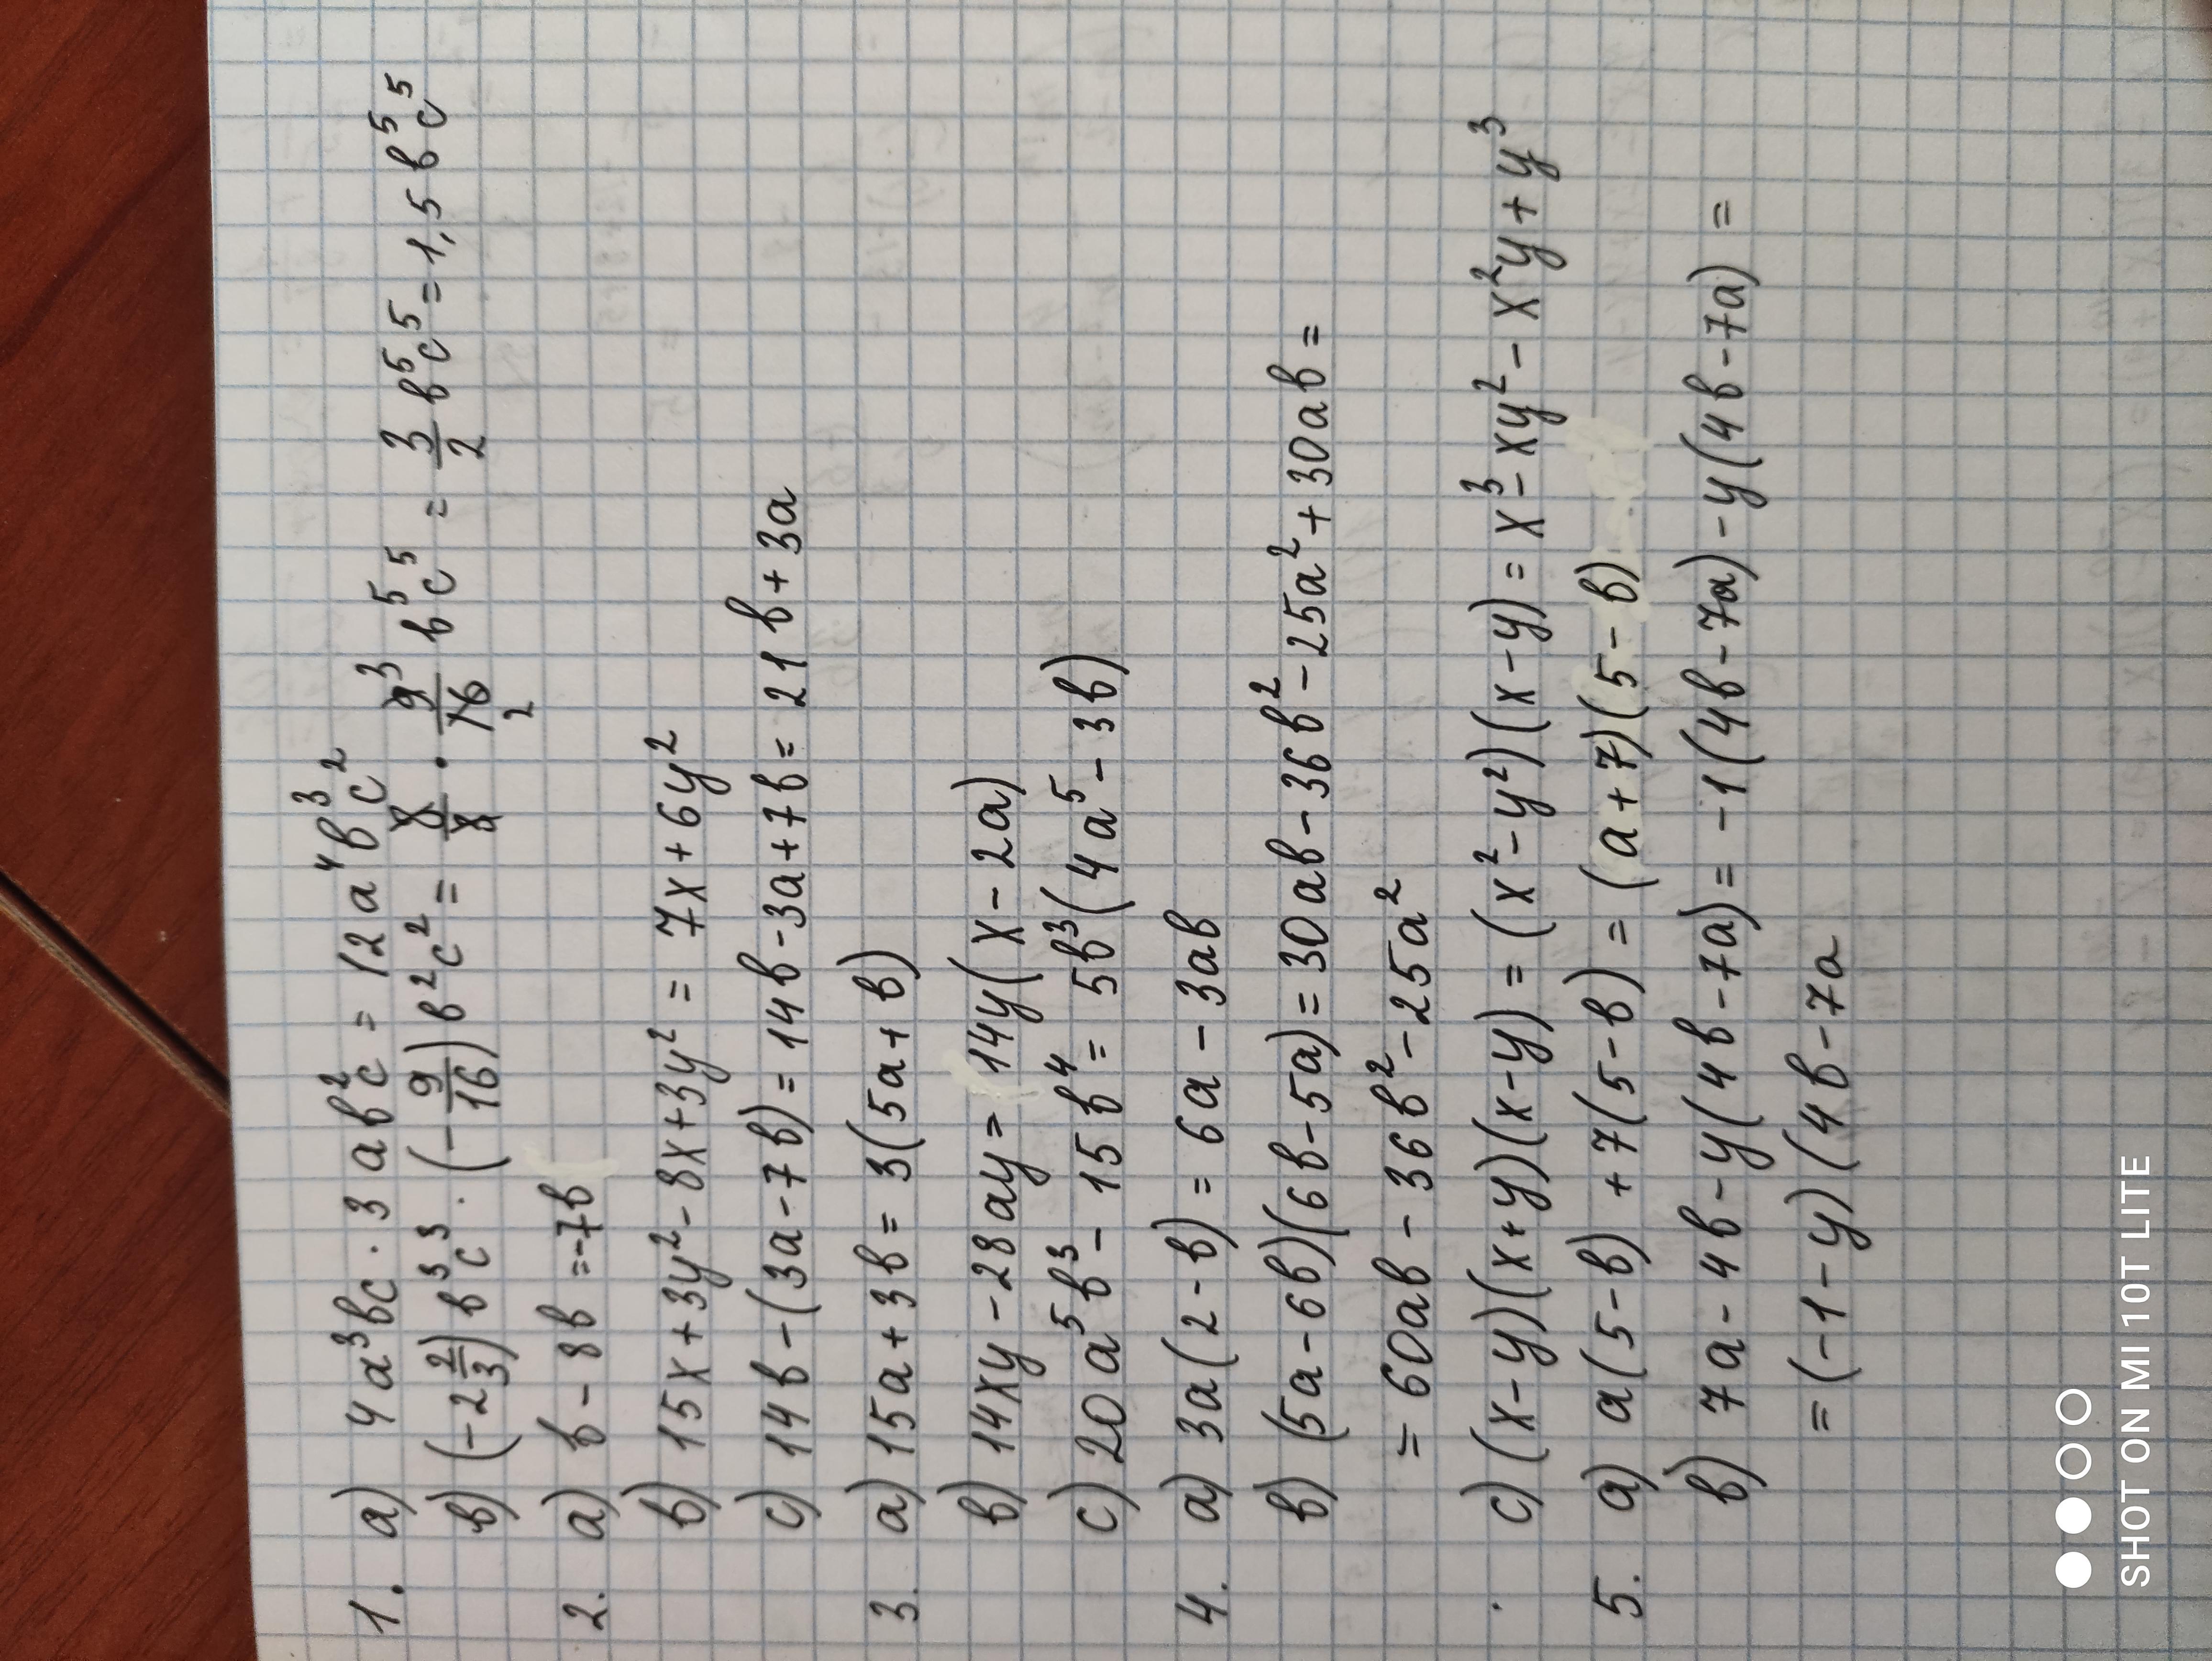 1. a) 4a³bc · 3ab²c = 12a⁴b³c²
b) (-2 2/3)b³c³ · (-9/16)b²c² = 8/3 · 9³/16₂ b⁵c⁵ = 3/2 b⁵c⁵ = 1,5b⁵c⁵
2. a) b - 8b = -7b
b) 15x + 3y² - 8x + 3y² = 7x + 6y²
c) 14b - (3a - 7b) = 14b - 3a + 7b = 21b + 3a
3. a) 15a + 3b = 3(5a + b)
b) 14xy - 28ay = 14y(x - 2a)
c) 20a⁵b³ - 15b⁴ = 5b³(4a⁵ - 3b)
4. a) 3a(2 - b) = 6a - 3ab
b) (5a - 6b)(6b - 5a) = 30ab - 36b² - 25a² + 30ab =
= 60ab - 36b² - 25a²
c) (x - y)(x + y)(x - y) = (x² - y²)(x - y) = x³ - xy² - x²y + y³
5. a) a(5 - b) + 7(5 - b) = (a + 7)(5 - b)
b) 7a - 4b - y(4b - 7a) = -1(4b - 7a) - y(4b - 7a) =
= (-1 - y)(4b - 7a
SHOT ON MI 10T LITE